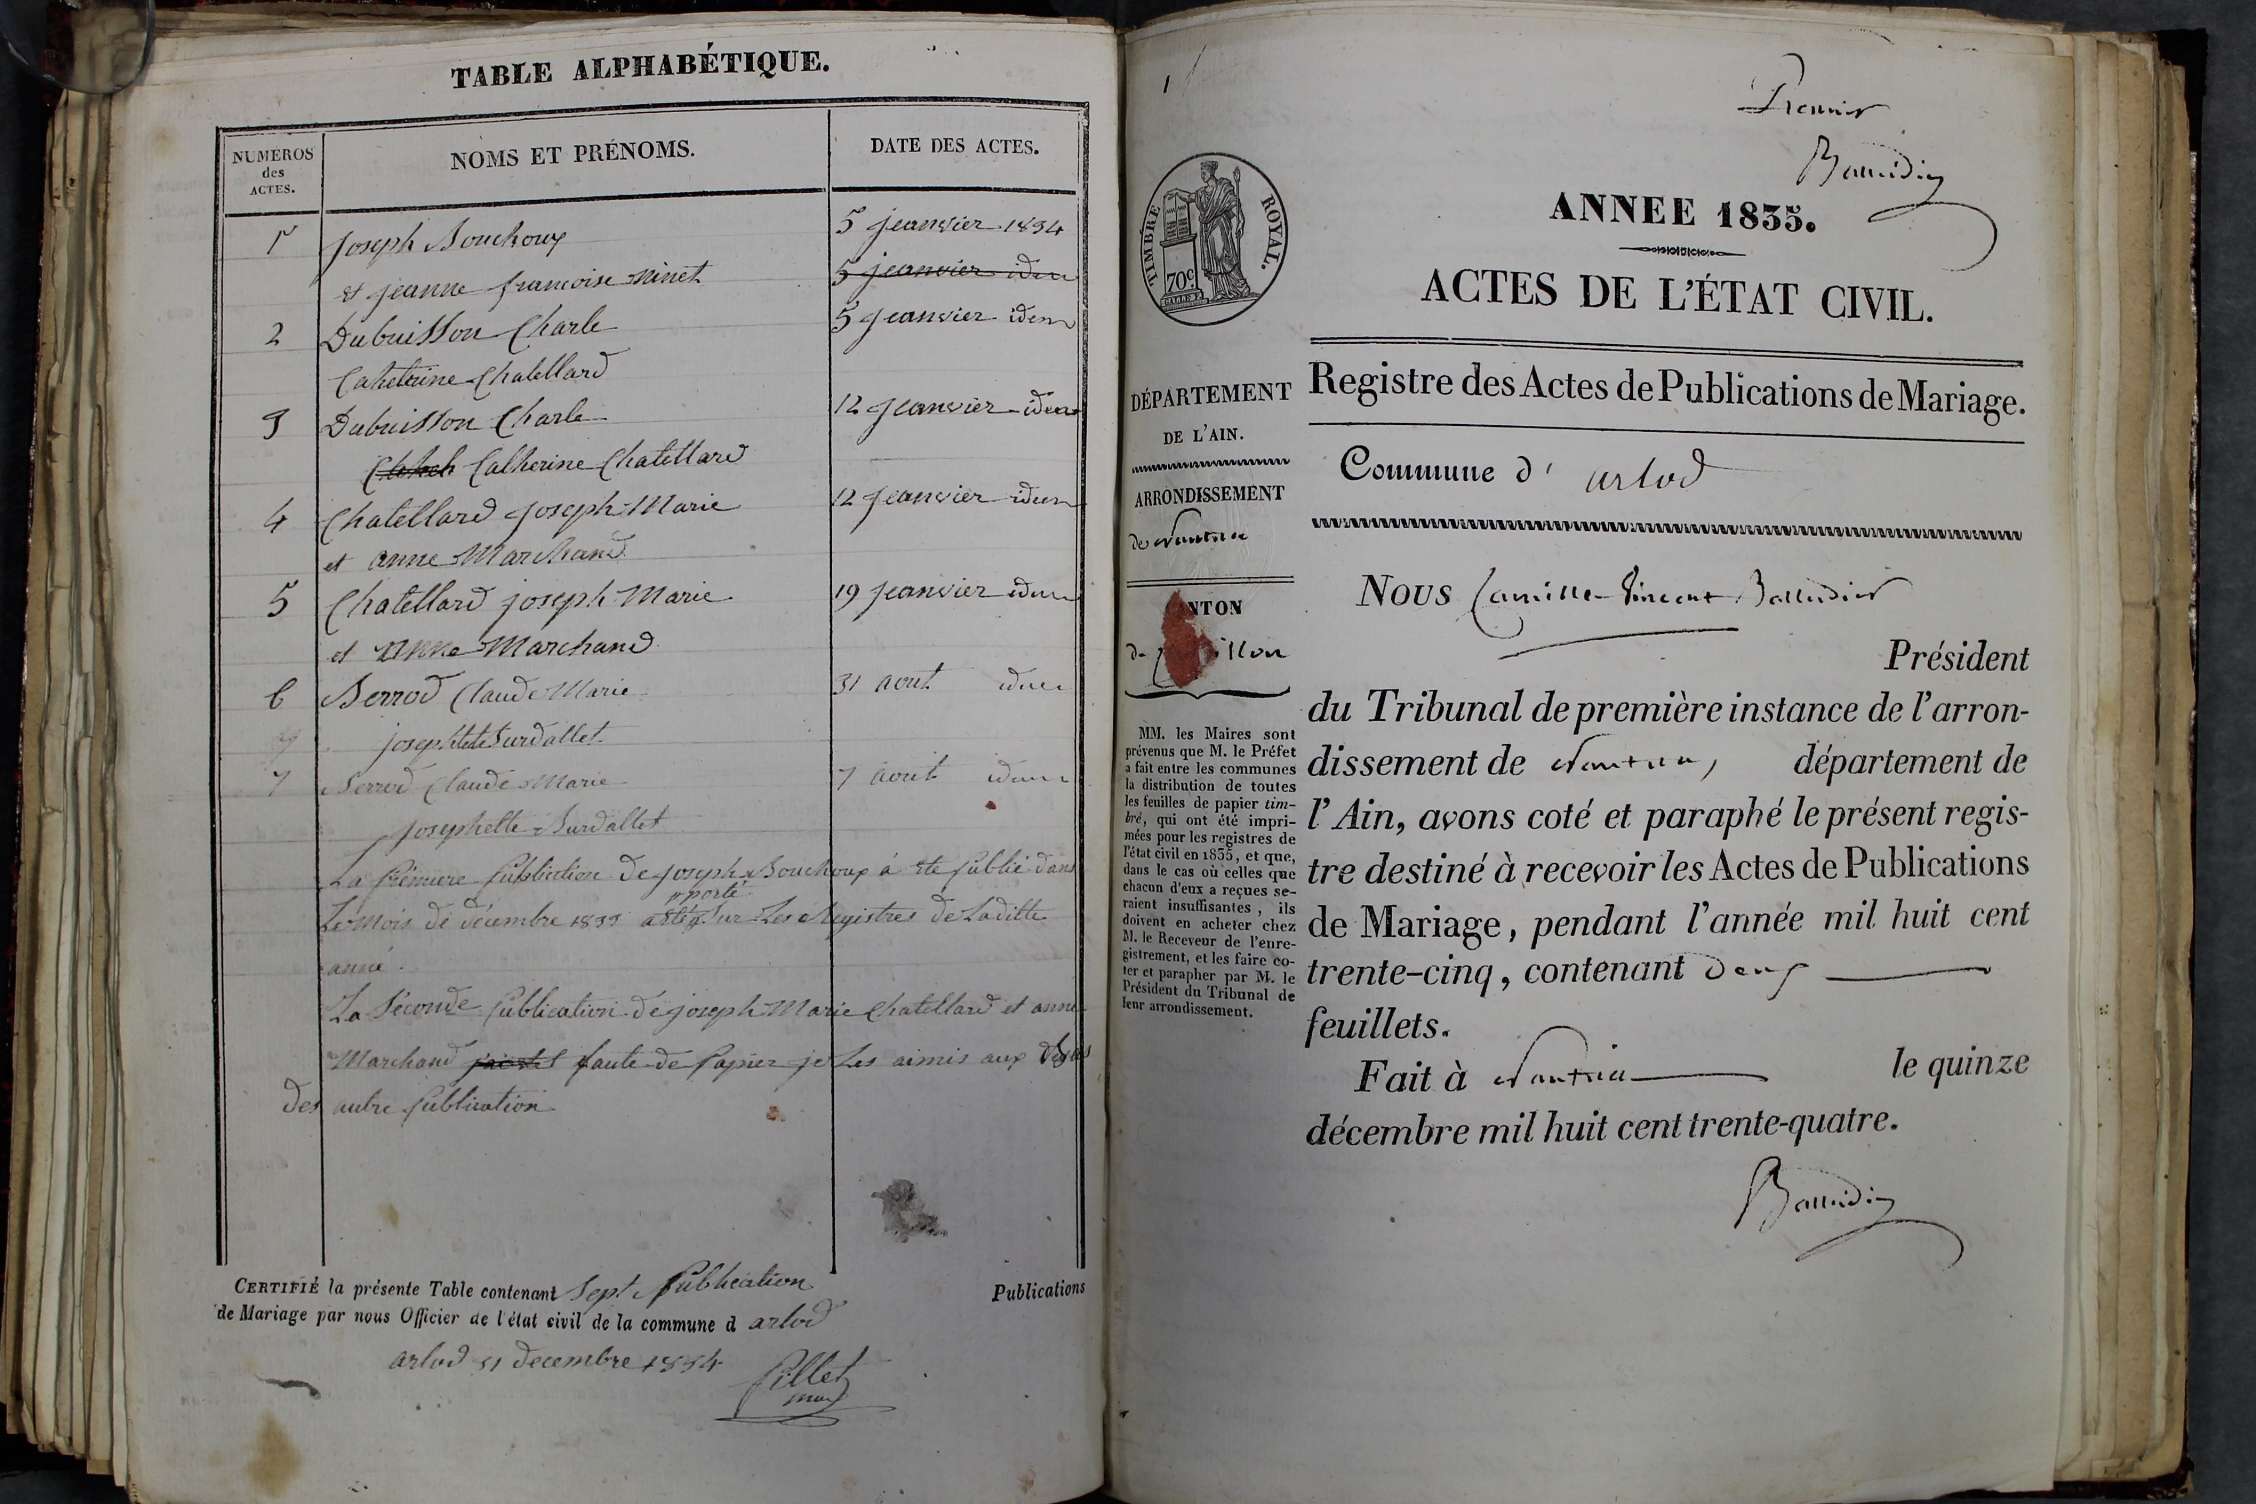 TABLE ALPHABÉTIQUE.
NUMEROS
des
ACTES.
NOMS ET PRÉNOMS.
DATE DES ACTES.
1 joseph Bouchoux 5 jeanvier 1834
et jeanne francoise Ninet 5 jeanvier idem
2 Dubuisson Charle 5 jeanvier idem
Caheterine Chatellard
3 Dubuisson Charle 12 jeanvier idem
Catherine Chatellard
4 Chatellard joseph Marie 12 jeanvier idem
et anne Marchand
5 Chatellard joseph Marie 19 jeanvier idem
et anne Marchand
6 Berrod Claude Marie 31 aout idem
josephte Surdallet
7 Berrod Claude Marie 7 aout idem
josephette Surdallet
La premiere publication de joseph Bouchoux à ete publié dans
pporté
Le mois de décembre 1833 sur Les Registres de Laditte
anné.
La séconde publication de joseph Marie Chatellard et anne
Marchand faute de papier je Les aimis aux
des autre publication
CERTIFIÉ la présente Table contenant Sept publication Publications
de Mariage par nous Officier de l'état civil de la commune d arlod
arlod 31 decembre 1834
Pillet
1
Premier
Balleidier
TIMBRE ROYAL.
70c
ANNEE 1835.
ACTES DE L'ÉTAT CIVIL.
Registre des Actes de Publications de Mariage.
Commune d' arlod
DÉPARTEMENT
DE L'AIN.
ARRONDISSEMENT
de Nantua
NTON
de illon
MM. les Maires sont
prévenus que M. le Préfet
a fait entre les communes
la distribution de toutes
les feuilles de papier tim-
bré, qui ont été impri-
mées pour les registres de
l'état civil en 1835, et que,
dans le cas où celles que
chacun d'eux a reçues se-
raient insuffisantes, ils
doivent en acheter chez
M. le Receveur de l'enre-
gistrement, et les faire co-
ter et parapher par M. le
Président du Tribunal de
leur arrondissement.
Nous Camille Vincent Balleidier
Président
du Tribunal de première instance de l'arron-
dissement de Nantua, département de
l'Ain, avons coté et paraphé le présent regis-
tre destiné à recevoir les Actes de Publications
de Mariage, pendant l'année mil huit cent
trente-cinq, contenant deux
feuillets.
Fait à Nantua le quinze
décembre mil huit cent trente-quatre.
Balleidier